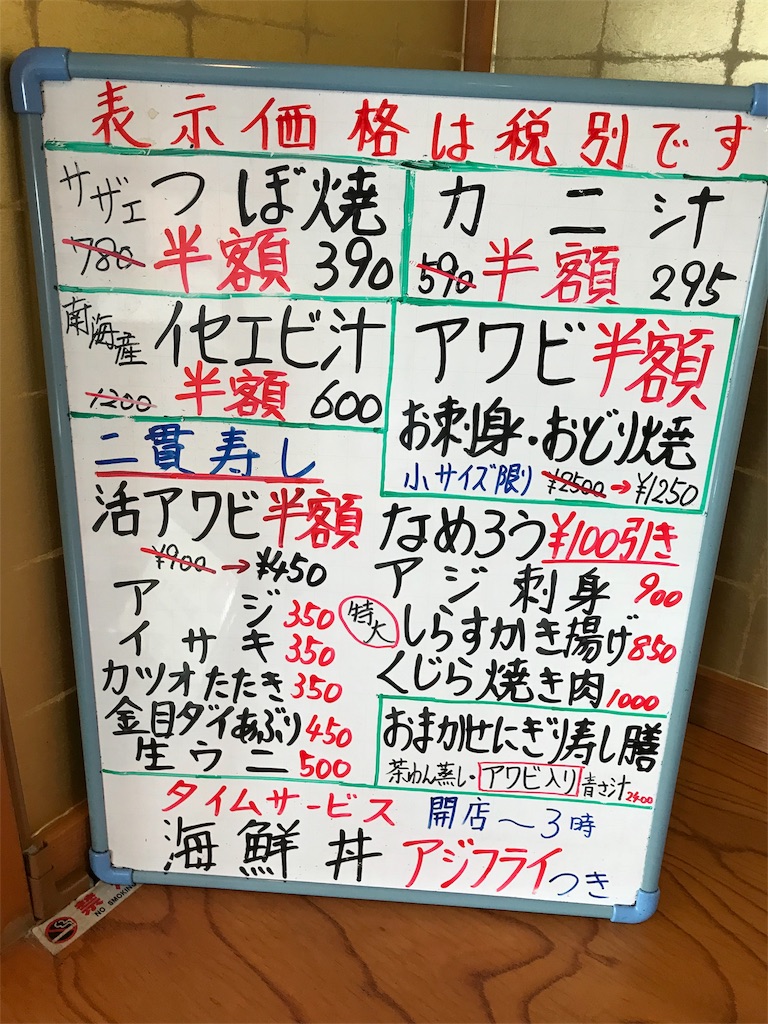 表示価格は税別です
サザエ つぼ焼
780 半額 390
カニ汁
590 半額 295
南海産 イセエビ汁
1200 半額 600
アワビ半額
お刺身・おどり焼
小サイズ限り ¥2500→¥1250
二貫寿し
活アワビ半額
¥900→¥450
アジ350
イサキ350
カツオたたき350
金目ダイあぶり450
生ウニ500
なめろう¥100引き
アジ刺身900
特大 しらすかき揚げ850
くじら焼き肉1000
おまかせにぎり寿し膳
茶わん蒸し・アワビ入り青さ汁2400
タイムサービス 開店〜3時
海鮮丼 アジフライつき
NO SMOKING